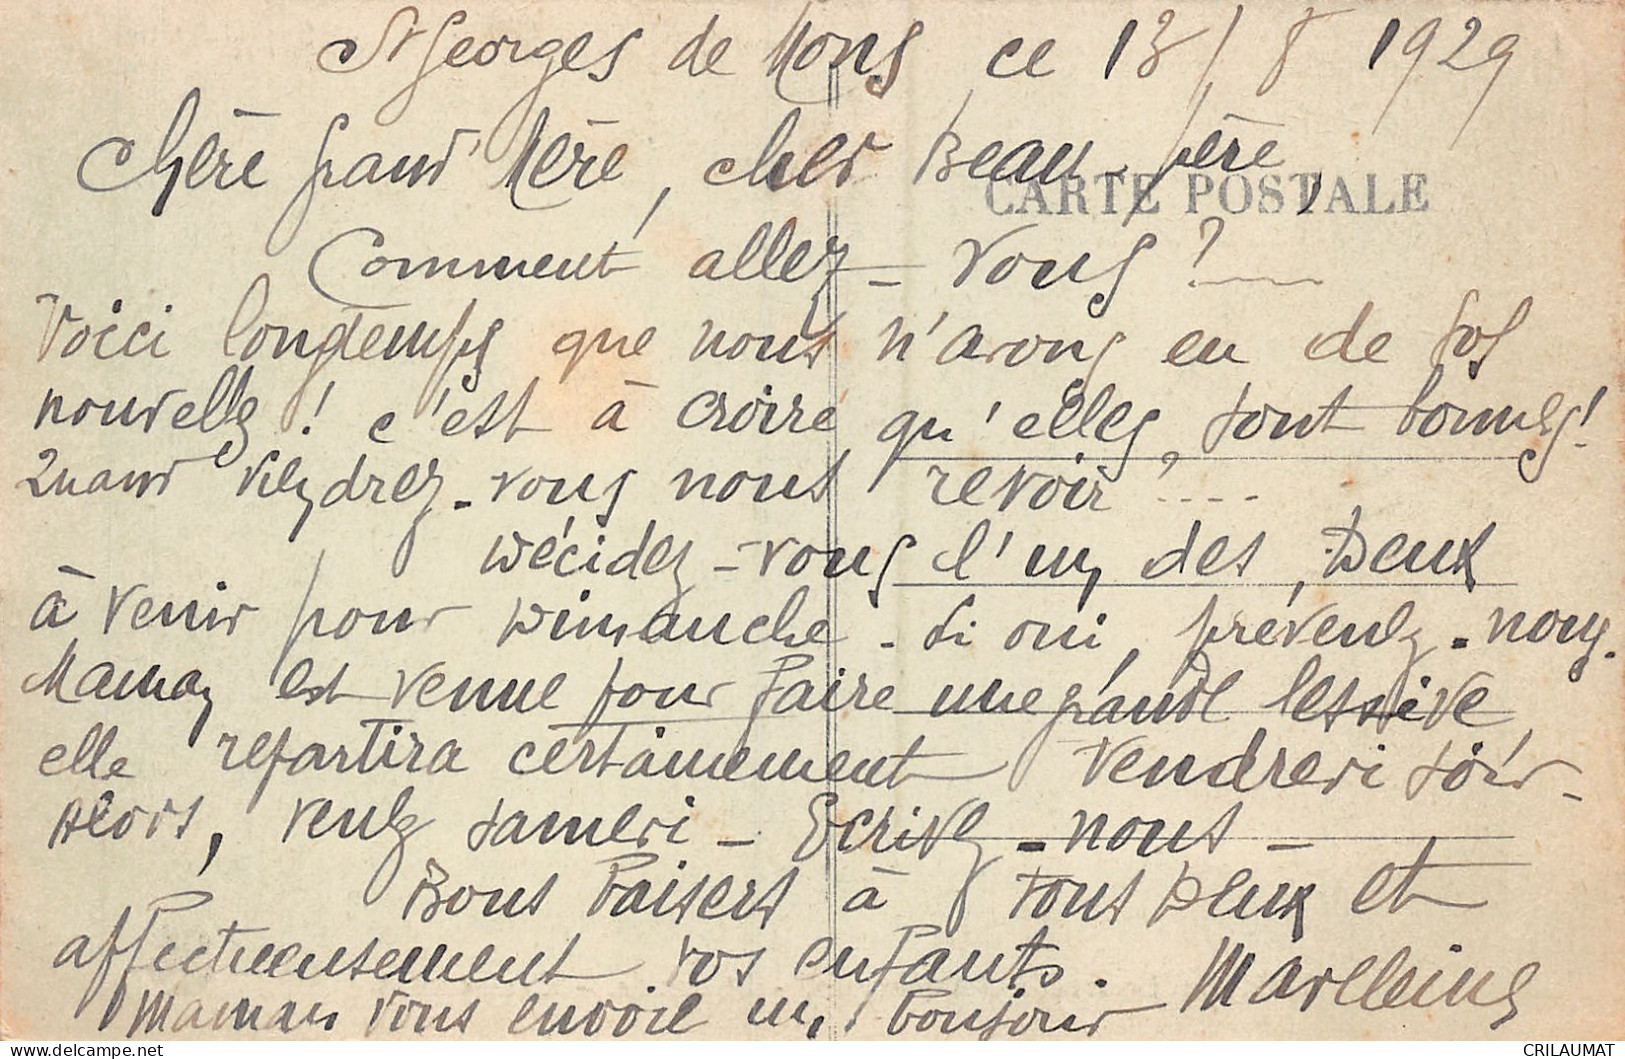 St Georges de Mons ce 13/8 1929
Chère grand'Mère, cher Beau-père,
CARTE POSTALE
Comment allez-vous ?
Voici longtemps que nous n'avons eu de vos
nouvelles ! c'est à croire qu'elles sont bonnes !
Quand viendrez-vous nous revoir ? ....
Décidez-vous l'un des Deux
à venir pour Dimanche - Si oui, prévenez-nous.
Maman est venue pour faire une grande lessive
elle repartira certainement Vendredi soir -
Alors, venez samedi - Ecrivez-nous -
Bons baisers à tous Deux et
affectueusement vos enfants. Marcelling
Maman vous envoie un bonjour
CRILAUMAT